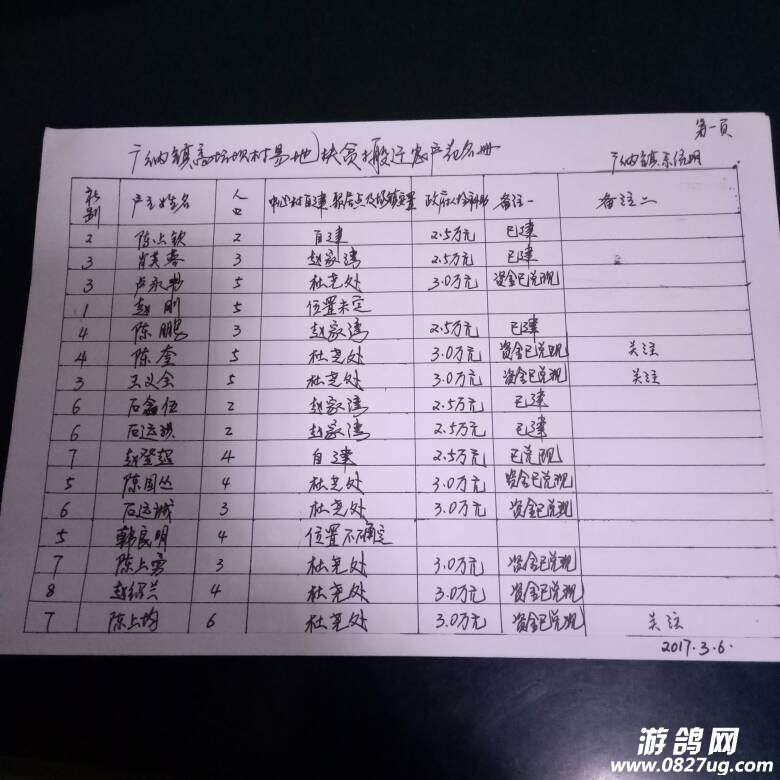 第一页
广纳镇高坝村易地扶贫搬迁农户花名册
广纳镇
社别 户主姓名 人口 中心村自建、聚居点及场镇安置 政府 补助 备注一 备注二
2 陈上钦 2 自建 2.5万元 已建
3 肖英春 3 赵家湾 2.5万元 已建
3 卢永 5 杜尧处 3.0万元 资金已兑现
1 赵刚 5 位置未定
4 陈鹏 3 赵家湾 2.5万元 已建
4 陈奎 5 杜尧处 3.0万元 资金已兑现 关注
3 王义全 5 杜尧处 3.0万元 资金已兑现 关注
6 石鑫伍 2 赵家湾 2.5万元 已建
6 石运 2 赵家湾 2.5万元 已建
7 赵登超 4 自建 2.5万元 已兑现
5 陈国丛 4 杜尧处 3.0万元 资金已兑现
6 石运诚 3 杜尧处 3.0万元 资金已兑现
5 韩良明 4 位置不确定
7 陈上勇 3 杜尧处 3.0万元 资金已兑现
8 赵绍兰 4 杜尧处 3.0万元 资金已兑现
7 陈上均 6 杜尧处 3.0万元 资金已兑现 关注
2017.3.6.
游鸽网
www.0827ug.com